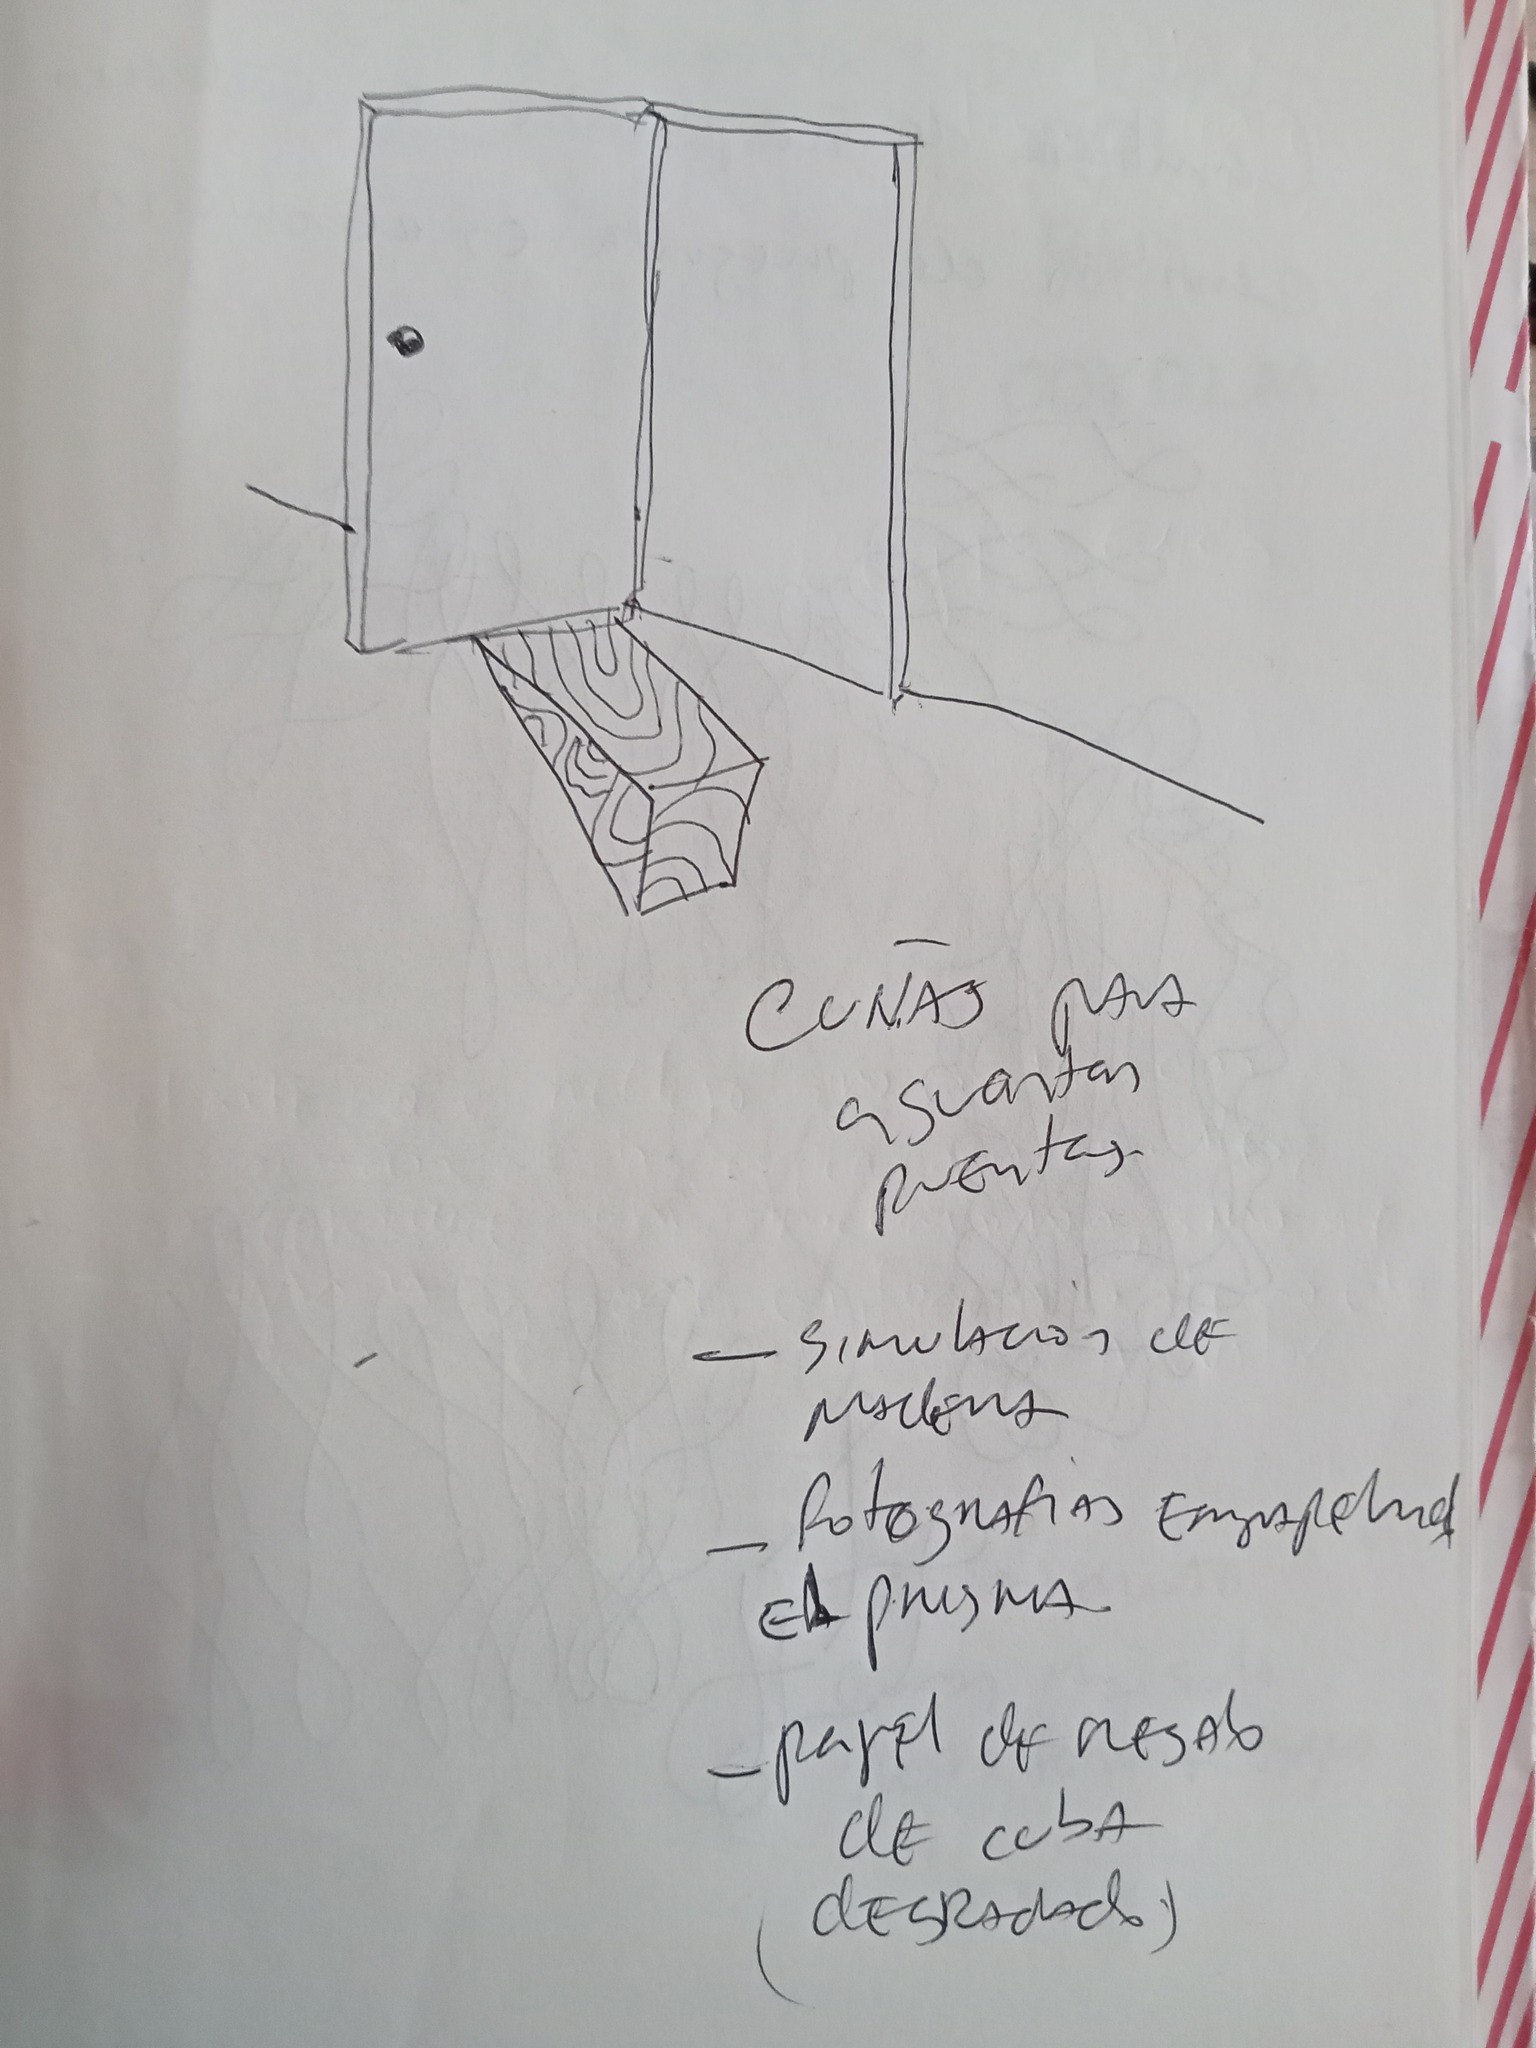 CUÑAS para
aguantar
puertas.
— simulación de
madera
— fotografias empapeland
El prisma
— papel de regalo
de cuba
(degradado)